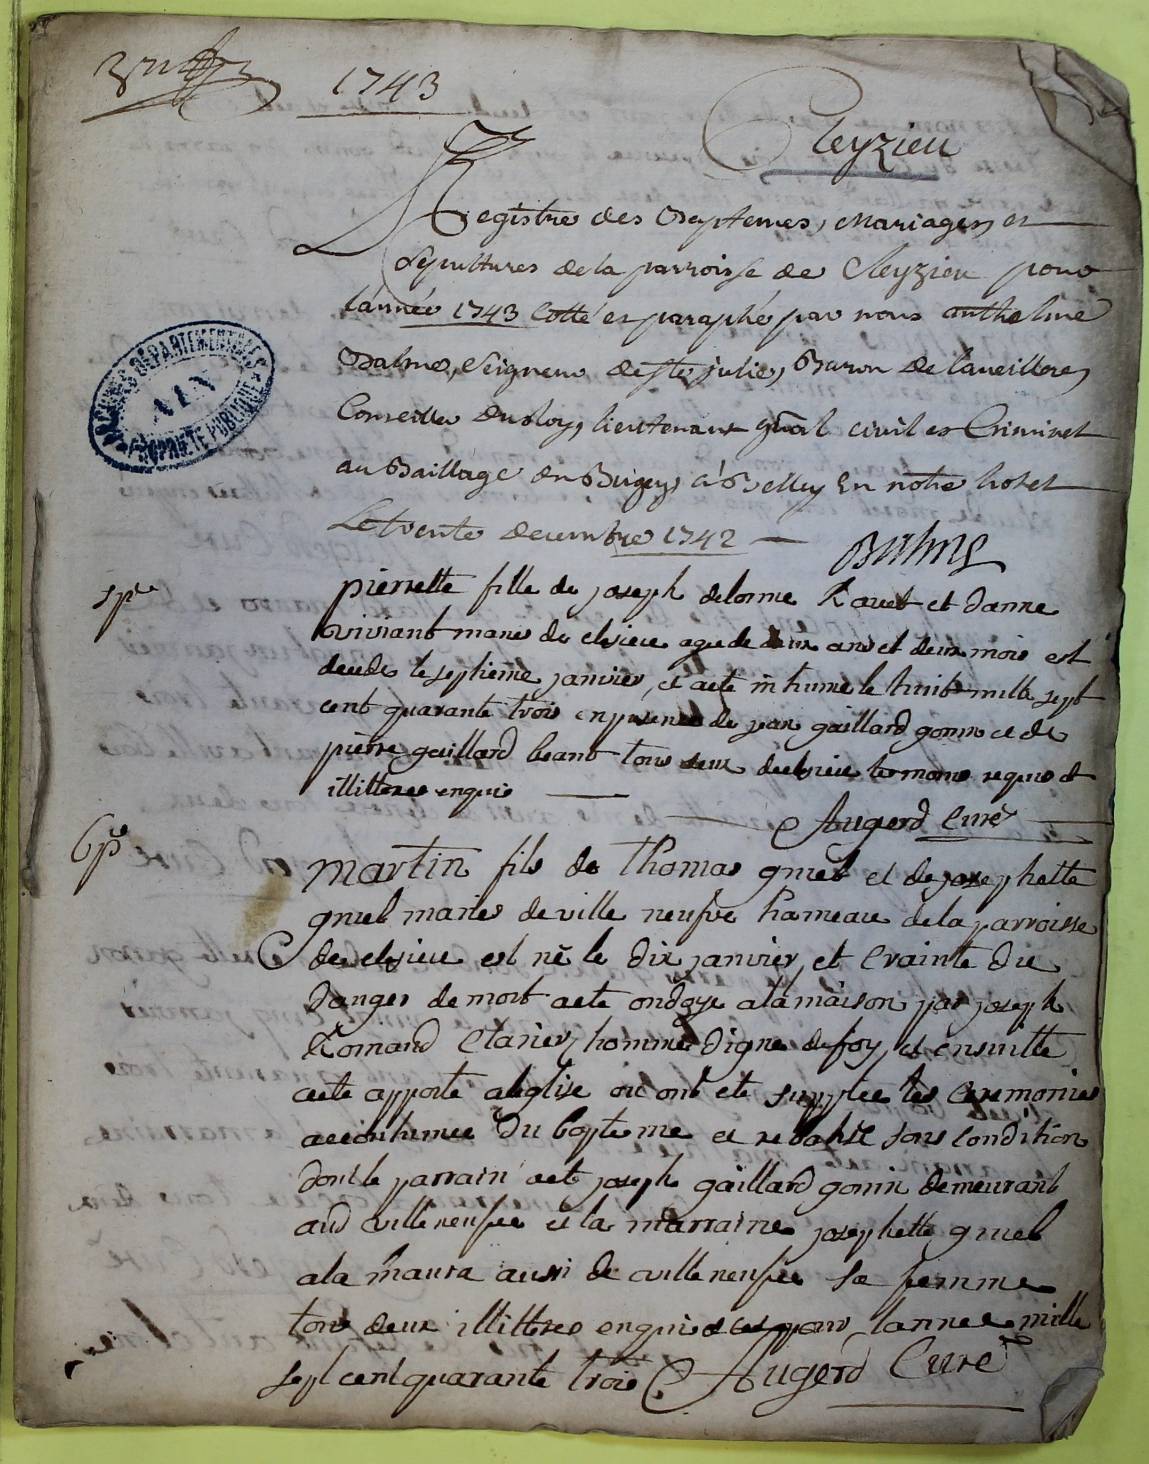 1743
Cleyzieu
Registre des Baptemes, Mariages, et
Sepultures de la parroisse de Cleyzieu pour
l'année 1743 Cotté et paraphé par nous anthelme
Balme, Seigneur de Ste julie, Baron de
Conseiller du Roy, lieutenant gnãl civil et Criminel
au Baillage du Bugey, à Belley En notre hotel
Le trente decembre 1742
Balme
ARCHIVES DÉPARTEMENTALES
AIN
PROPRIÉTÉ PUBLIQUE
spre
pierrette fille de joseph delorme Ravet et danne
viviant maries de clesieu agee de deux ans et deux mois est
decede le septieme janvier, et aeté inhume le huit mille sept
cent quarante trois en presence de jean gaillard gonin et de
pierre gaillard beant tous deux de clesieu temoins requis et
illitteres enquis
Augerd Curé
Bp
martin fils de Thomas gruel et de josephette
gruel maries de ville neufve hameau de la parroisse
de clesieu est né le dix janvier, et Crainte du
danger de mort aeté ondoye ala maison par joseph
Romand homme digne de foy, et ensuitte
aeté apporté aleglise ou ont eté supplee les Ceremonies
accoutumee Du bapteme et rebatisé sous Condition
dont le parrain aeté joseph gaillard gonin demeurant
aud villeneufve et la marraine josephette gruel
ala maura aussi de villeneufve sa femme
tous deux illitteres enquis lannee mille
sept cent quarante trois Augerd Curé